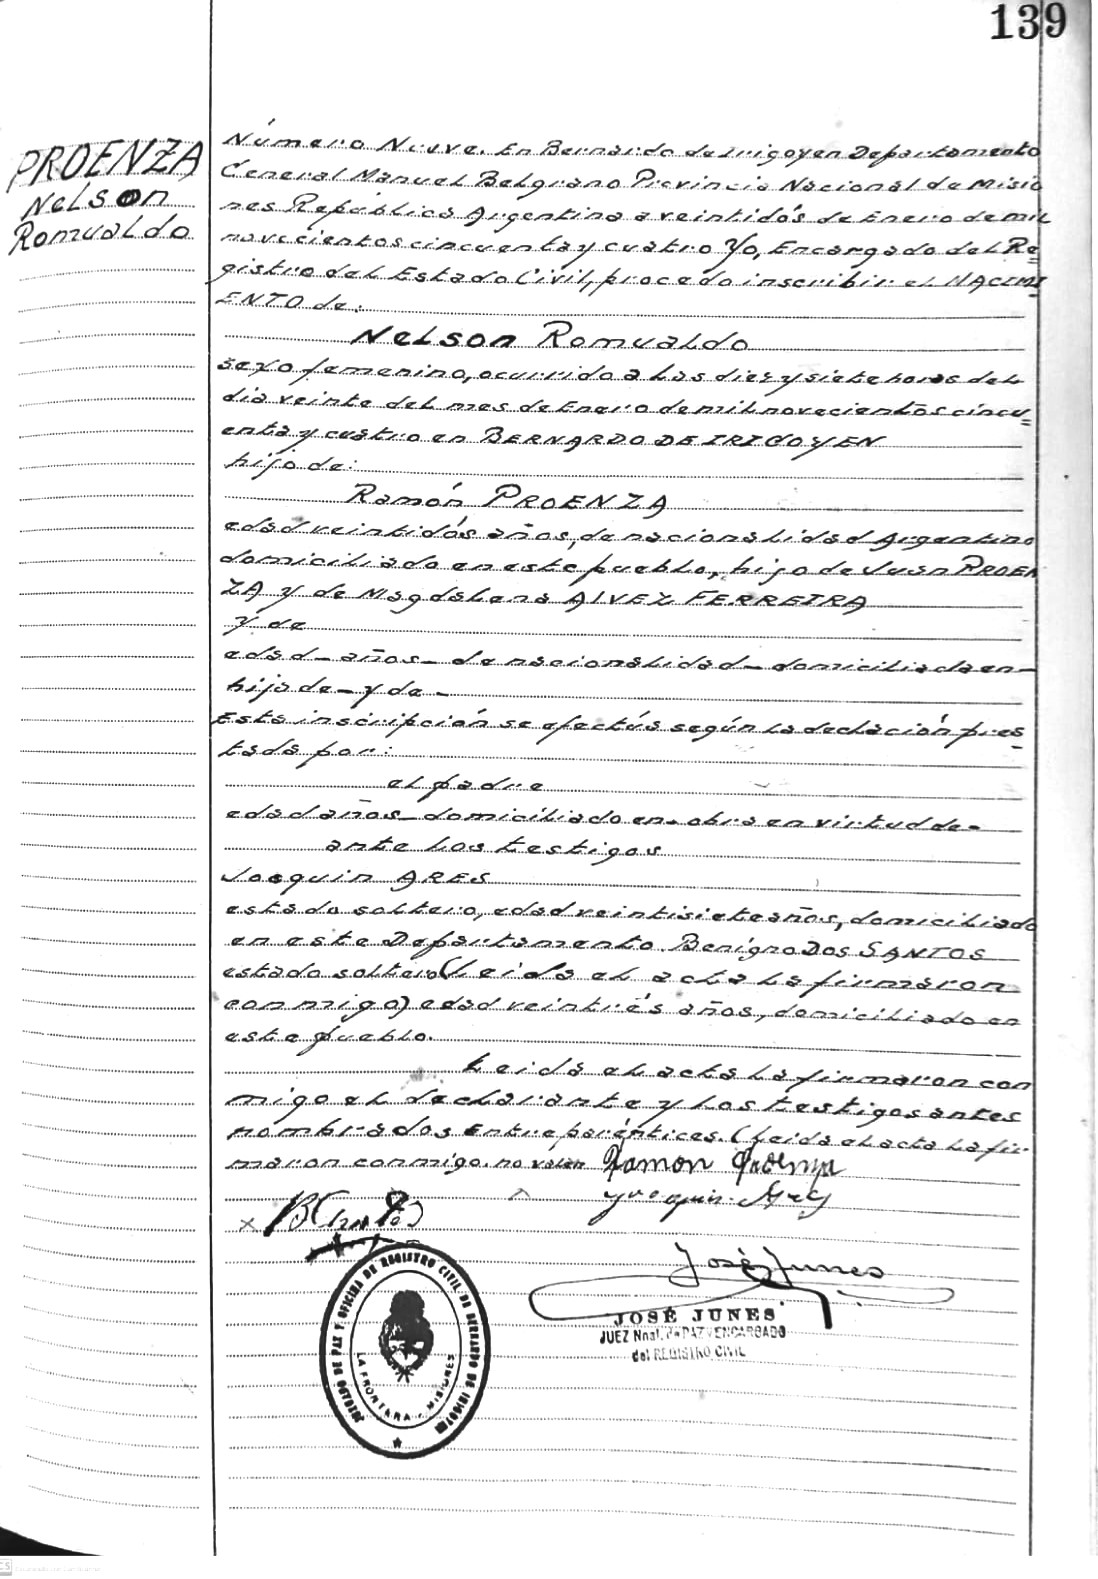 139
PROENZA
Nelson
Romualdo
Número Nueve. En Bernardo de Irigoyen Departamento
General Manuel Belgrano Provincia Nacional de Misio
nes República Argentina a veintidós de Enero de mil
novecientos cincuenta y cuatro Yo, Encargado del Re=
gistro del Estado Civil, procedo inscribir el NACIMI
ENTO de:
Nelson Romualdo
sexo femenino, ocurrido a las diez y siete horas del
dia veinte del mes de Enero de mil novecientos cincu=
enta y cuatro en BERNARDO DE IRIGOYEN
hijo de:
Ramón PROENZA
edad veintidós años, de nacionalidad Argentino
domiciliado en este pueblo, hijo de Juan PROEN
ZA y de Magdalena ALVEZ FERREIRA
y de
edad_ años_ de nacionalidad_ domiciliada en_
hija de_ y de_
Esta inscripción se efectúa según la declación pres_
tada por:
el padre
edad años_ domiciliado en_ obra en virtud de_
ante los testigos
Joaquin ARES
estado soltero, edad veintisiete años, domiciliado
en este Departamento. Benigno DOS SANTOS
estado soltero (leida el acta la firmaron
conmigo) edad veintrés años, domiciliado en
este pueblo.
Leida el acta la firmaron con
migo el declarante y los testigos antes
nombrados Entre paréntices. (leida el acta la fir
maron conmigo. no valen Ramon Proenza
José Junes
JUZGADO DE PAZ Y OFICINA DE REGISTRO CIVIL DE BERNARDO DE IRIGOYEN
LA FRONTERA - MISIONES
JOSÉ JUNES
JUEZ Nnal. DE PAZ Y ENCARGADO
del REGISTRO CIVIL